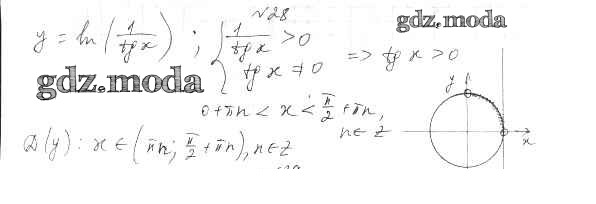 №28
gdz.moda
y = ln(1/tg x) ; { 1/tg x > 0
tg x ≠ 0 => tg x > 0
gdz.moda
0 + πn < x < π/2 + πn,
n ∈ Z
D(y): x ∈ (πn; π/2 + πn), n ∈ Z
y
x